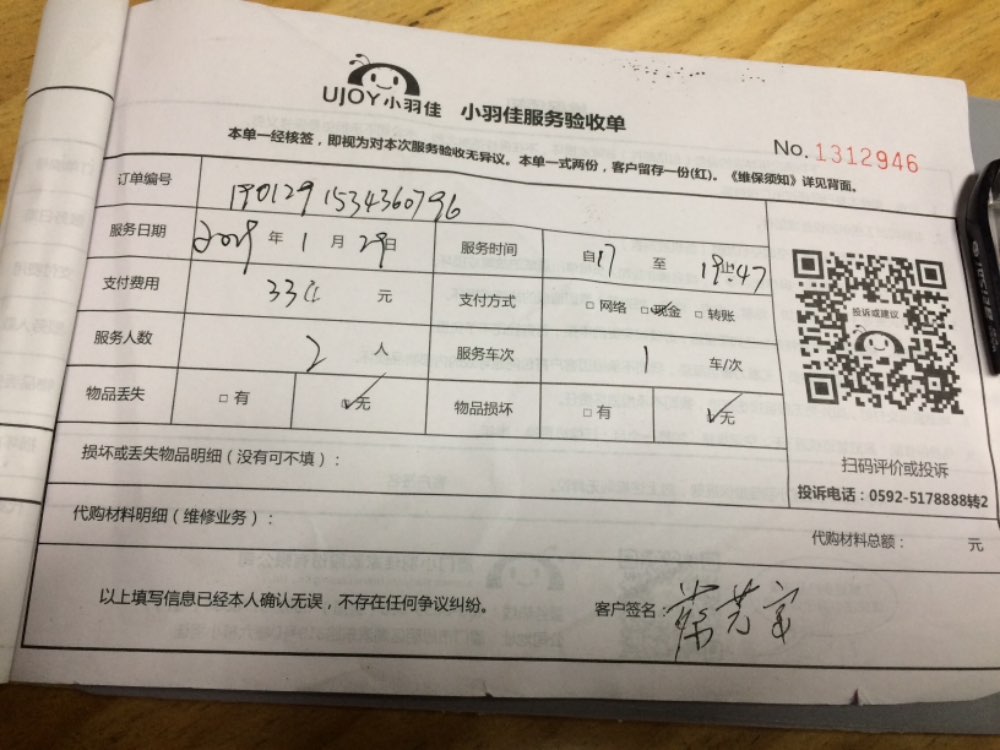 UJOY小羽佳 小羽佳服务验收单
No. 1312946
本单一经核签，即视为对本次服务验收无异议。本单一式两份，客户留存一份(红)。《维保须知》详见背面。
订单编号 190129 1534360796
服务日期 2019 年 1 月 29 日 服务时间 自17 至 19止:47
支付费用 330 元 支付方式 □ 网络 □ 现金 □ 转账
服务人数 2 人 服务车次 1 车/次
物品丢失 □ 有 □ 无 物品损坏 □ 有 □ 无
投诉或建议
损坏或丢失物品明细（没有可不填）：
扫码评价或投诉
投诉电话：0592-5178888转2
代购材料明细（维修业务）：
代购材料总额： 元
以上填写信息已经本人确认无误，不存在任何争议纠纷。 客户签名：